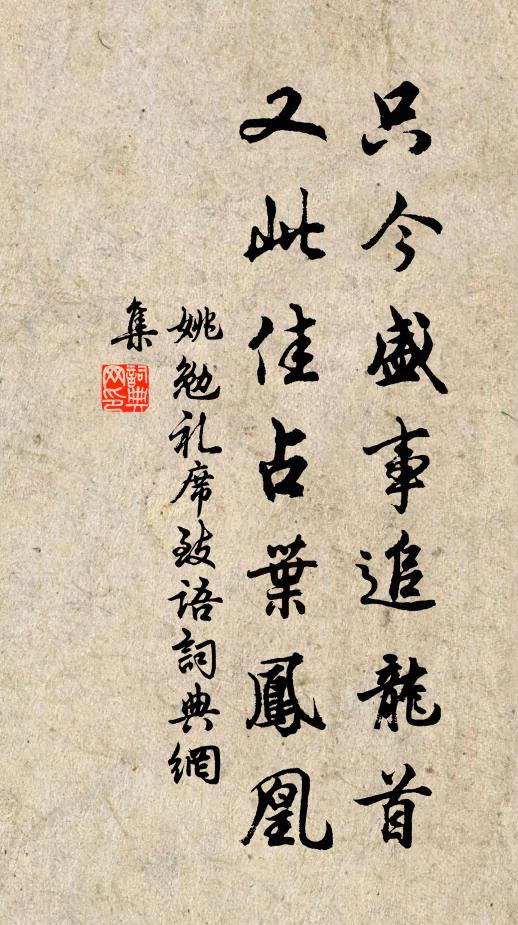 只今盛事追龍首
又此佳占葉鳳凰
姚勉礼席致語詞典網
集
詞典
网印